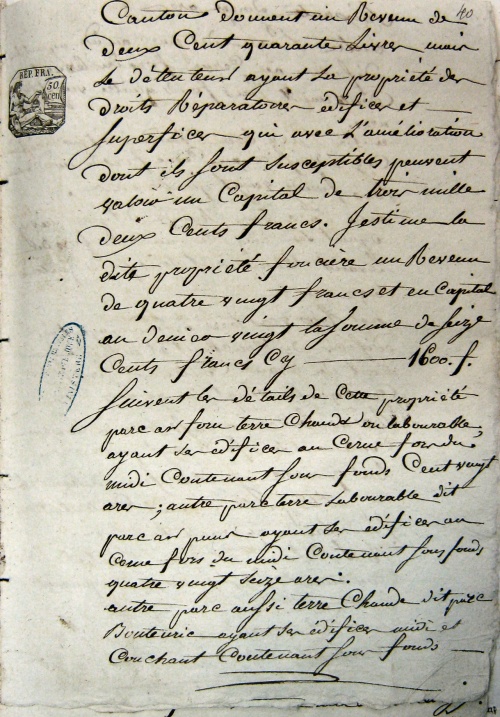 40
Canton donnent un Revenu de
deux Cent quarante Livres mais
le détenteur ayant la propriété des
droits Réparatoires édifices et
superfices qui avec L'amélioration
dont ils sont susceptibles peuvent
valoir un Capital de trois mille
deux Cents francs. J'estime la
dite propriété foncière un Revenu
de quatre vingt francs et en Capital
au denier vingt la somme de Seize
Cents francs Cy 1600. f.
Suivent les détails de Cette propriété
parc ar forn terre Chaude ou labourable,
ayant ses édifices au Cerne fors du
midi Contenant sous fonds Cent vingt
ares; autre parc terre labourable dit
parc ar puns ayant ses édifices au
Cerne fors du midi Contenant sous fonds
quatre vingt Seize ares.
autre parc aussi terre Chaude dit parc
ayant ses édifices midi et
Couchant Contenant sous fonds
REP. FRA.
50
cen